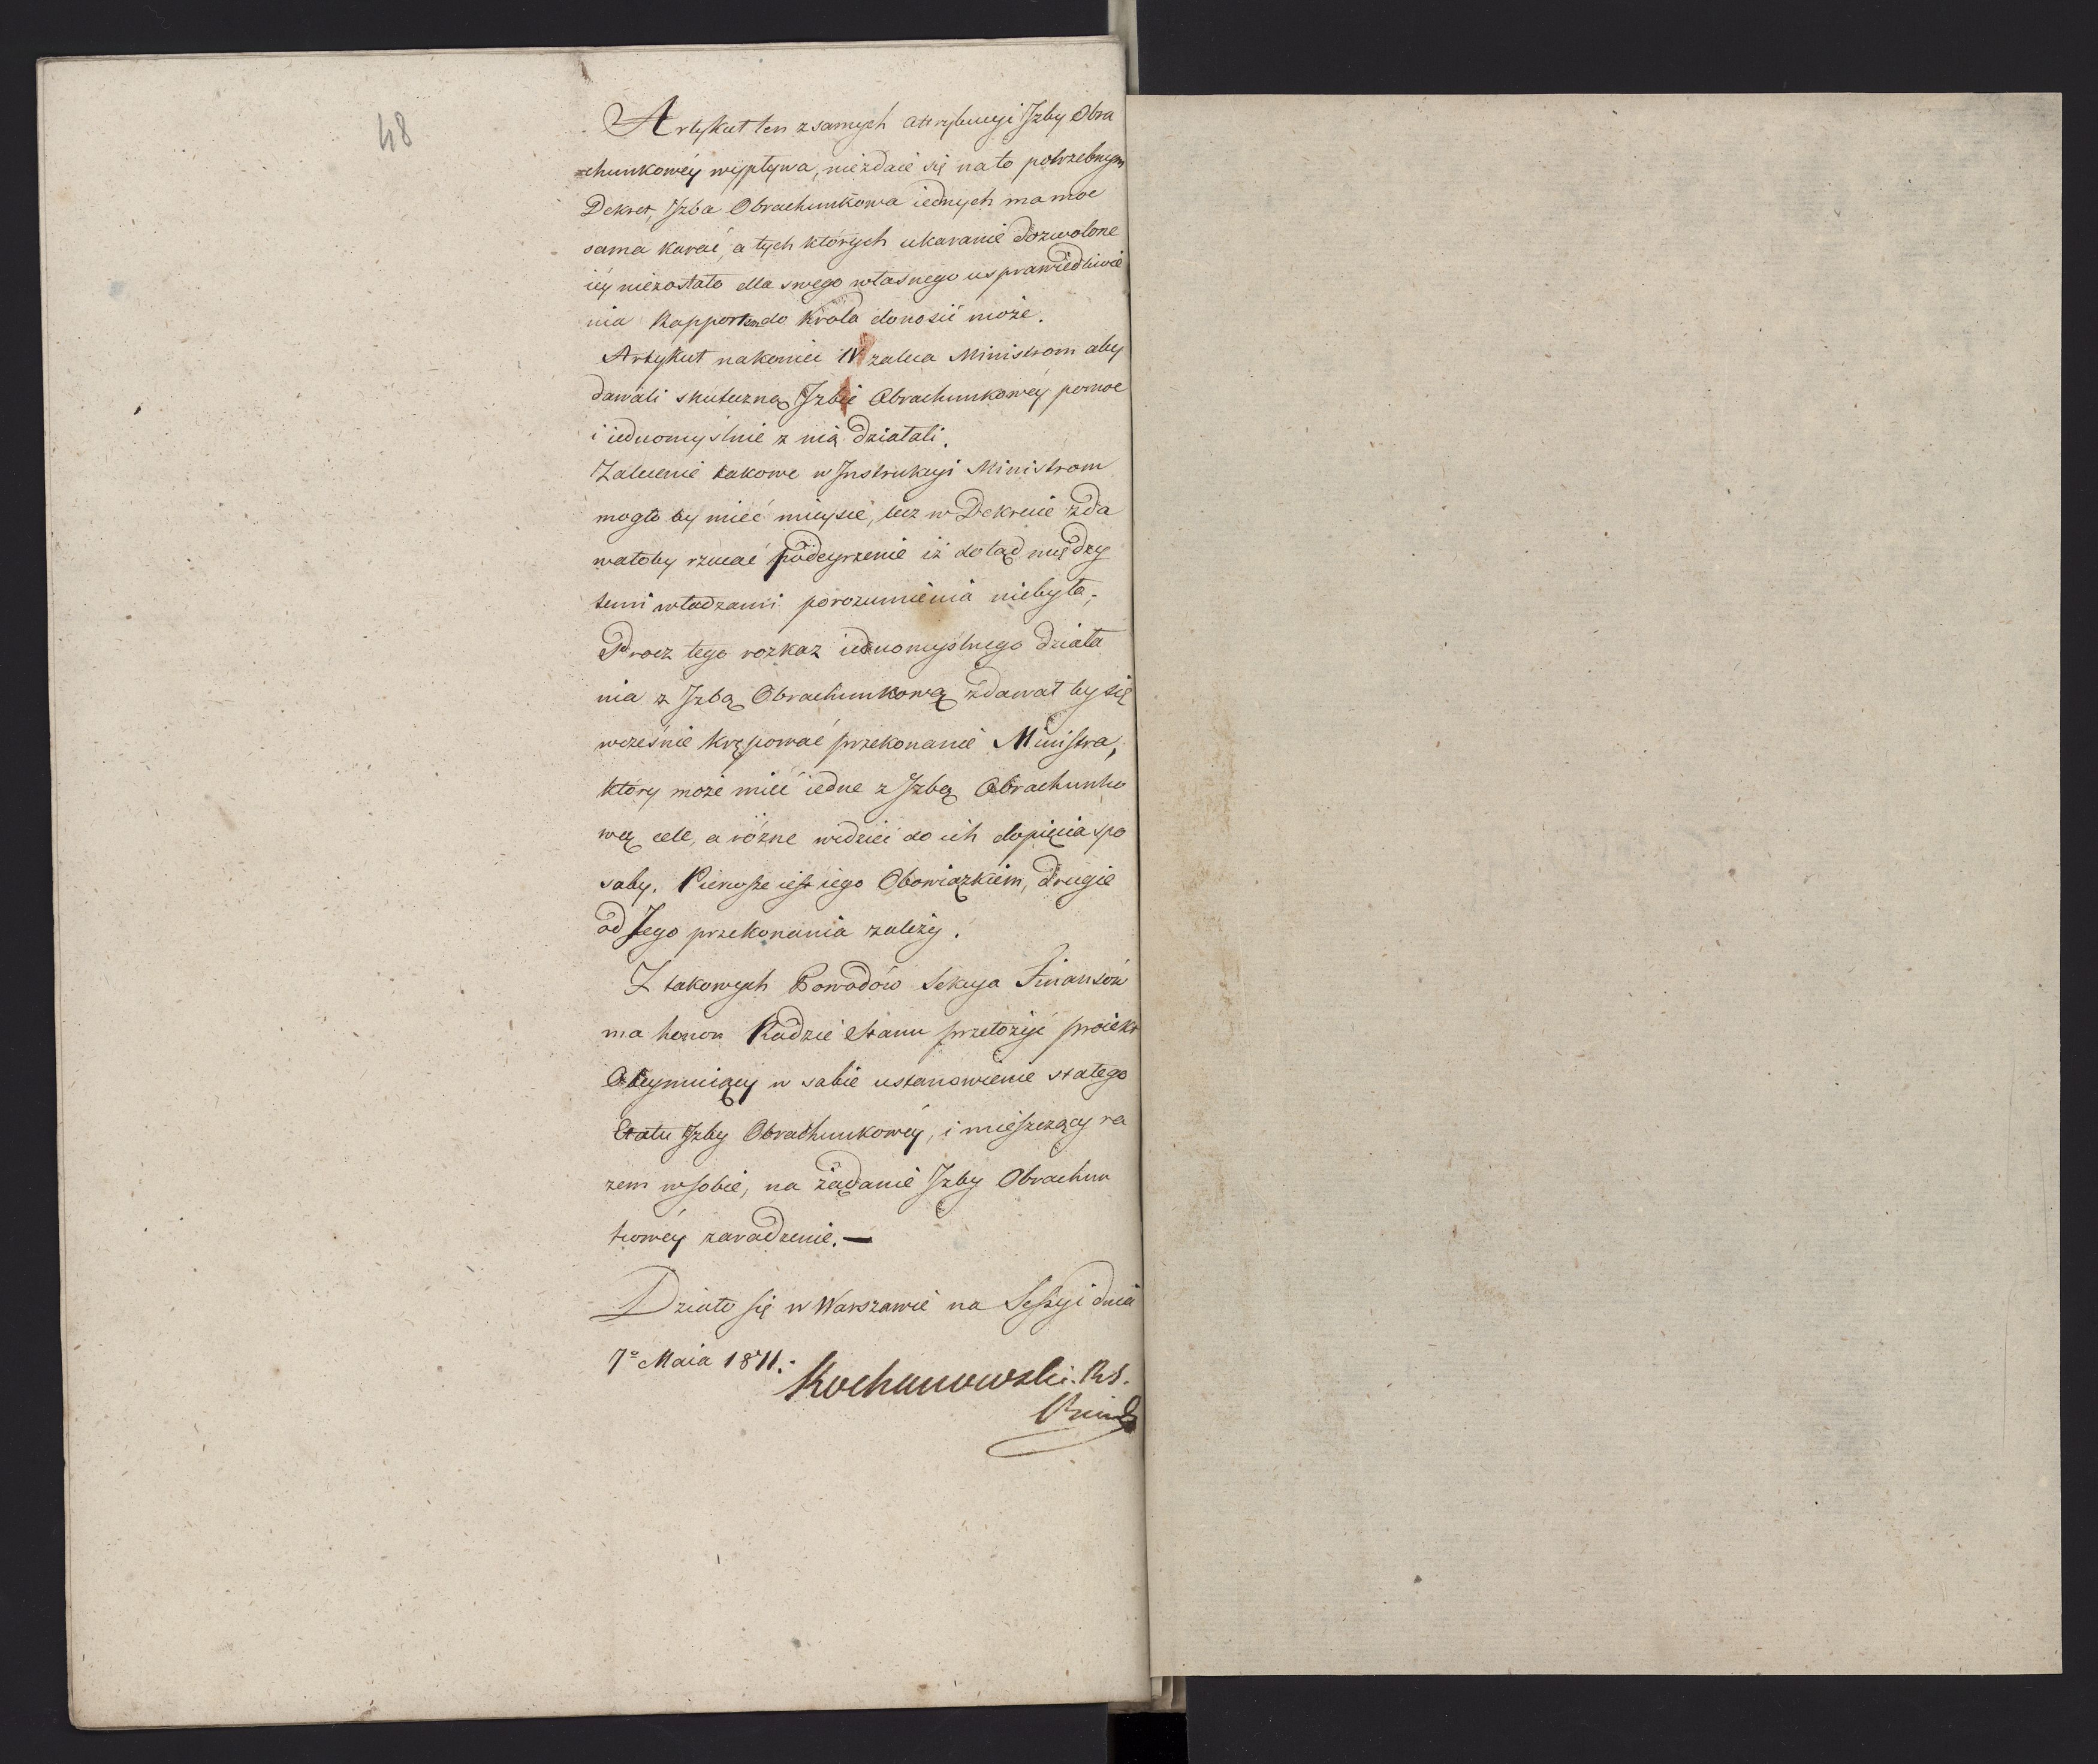 48
Artykuł ten z samych attrybucyi Jzby Obra
chunkowéy wypływa, niezdaie się na to potrzebnym
Dekret, Jzba Obrachunkowa iednych ma moc
sama karać, a tych których ukaranie dozwolone
iéy niezostało dla swego własnego usprawiedliwie
nia Rapportem do Króla donosić może.
Artykuł nakoniec IV zaleca Ministrom aby
dawali skuteczną Jzbie Obrachunkowéy pomoc
i iednomyślnie z nią działali.
Zalecenie takowe w Jnstrukcyi Ministrom
mogło by mieć mieysce, lecz w Dekrecie zda
wałoby rzucać podeyrzenie iż dotąd między
temi władzami porozumienia niebyło.
Procz tego rozkaz iednomyślnego działa
nia z Jzbą Obrachunkową zdawał by się
wcześnie krępować przekonanie Ministra,
który może mieć iedne z Jzbą Obrachunko
wą cele, a różne widzieć do ich dopięcia spo
soby. Pierwsze iest iego Obowiązkiem, drugie
od Jego przekonania zależy.
Z takowych Powodów Sekcya Finansów
ma honor Radzie Stanu przełożyć proiekt
Obeymuiący w sobie ustanowienie stałego
Etatu Jzby Obrachunkowéy, i mieszczący ra
zem w sobie, na żądanie Jzby Obrachun
kowéy zaradzenie. —
Działo się w Warszawie na Sessyi dnia
7º Maia 1811.
Kochanowski. R. S.